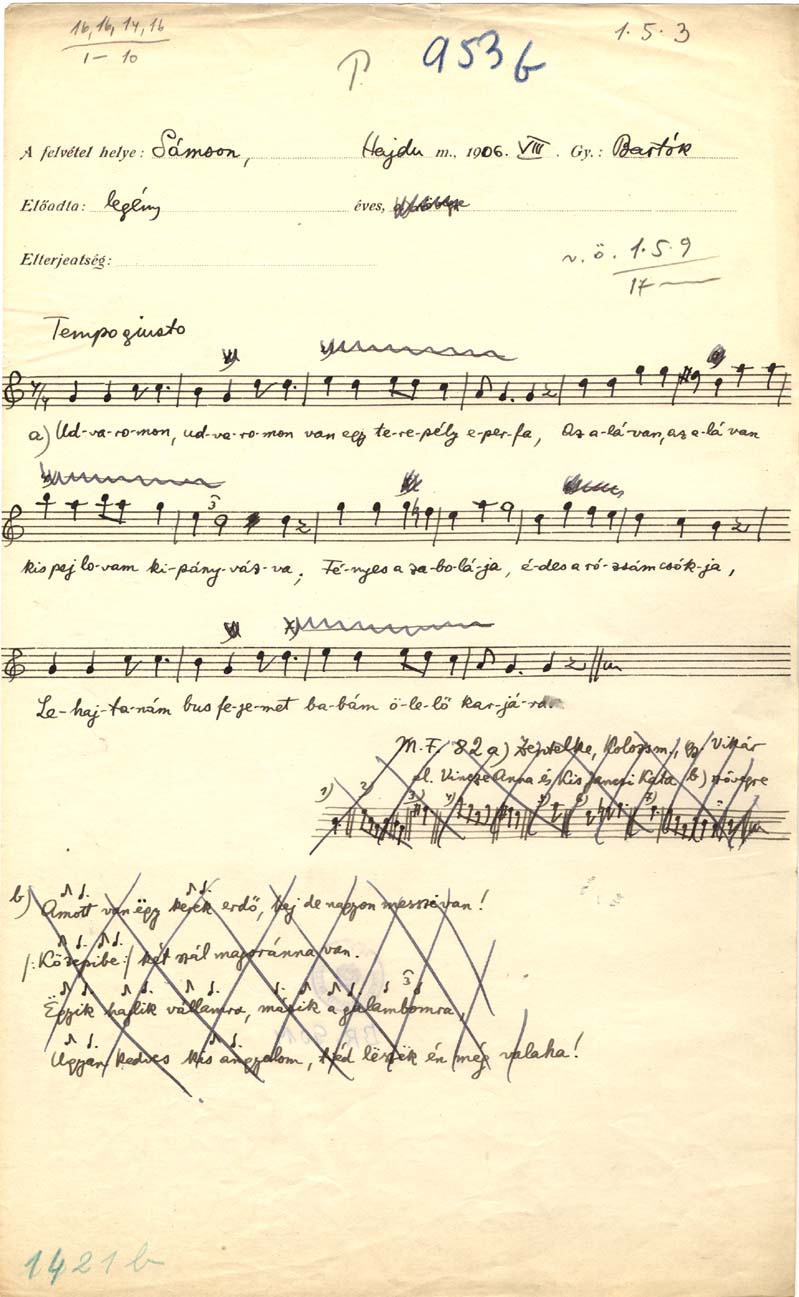 16, 16, 14, 16
1 – 10
1. 5. 3
P.
953 b
A felvétel helye: Sámson, Hajdu m., 1906. VIII. Gy.: Bartók
Előadta: legény éves,
Elterjeatség:
v. ö. 1. 5. 9
17 —
Tempo giusto
a) Ud-va-ro-mon, ud-va-ro-mon van egy te-re-pély e-per-fa, Az a-lá-van, az a-lá van
3
kis pej lo-vam ki-pány-váz-va, Fé-nyes a za-bo-lá-ja, é-des a ró-zsám csók-ja,
x)
Le-haj-ta-nám bus fe-je-met ba-bám ö-le-lő kar-já-ra.
M. F. 82 a) Zsptelke, Kolozsm., gy. Vikár
el. Vincze Anna és Kis Jancsi Kata b) szövegre
1) 2) 3) 4) 5) 6) 7)
b) Amott van ëgy kerek erdő, haj de nagyon messze van!
/: Közepibe :/ két szál majoránna van.
3
Ëgyik hajlik vállamra, másik a galambomra,
Ugyan kedves kis angyalom, tiéd lëszëk én még valaha!
1421 b